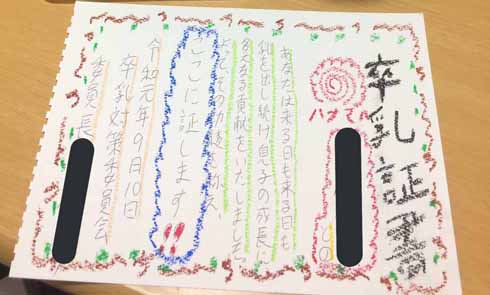 卒乳証書
ハナマル
どの
あなたは来る日も来る日も
乳を出し続け息子の成長に
多大なる貢献をいたしました。
よってその功績を称え、
ここに証します!!
令和元年9月10日
卒乳対策委員会
委員長